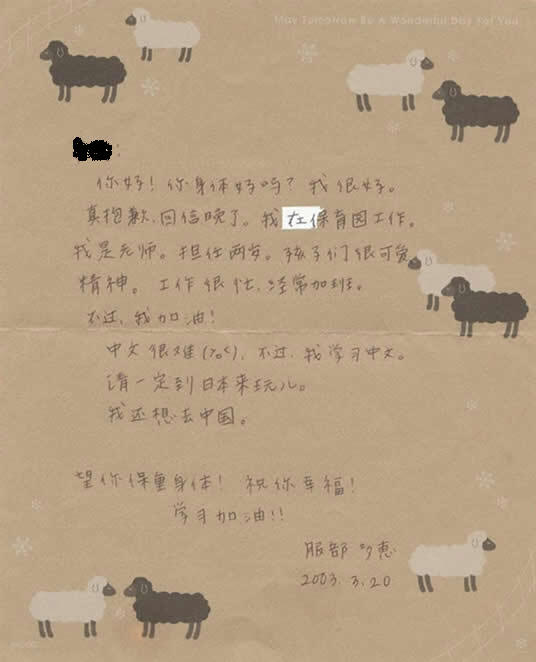 May Tomorrow Be A Wonderful Day For You
:
你好！你身体好吗？我很好。
真抱歉，回信晚了。我在保育园工作。
我是老师。担任两岁。孩子们很可爱
精神。工作很忙，经常加班。
不过，我加油！
中文很难，不过，我学习中文。
请一定到日本来玩儿。
我还想去中国。
望你保重身体！祝你幸福！
学习加油!!
服部 多恵
2003.3.20